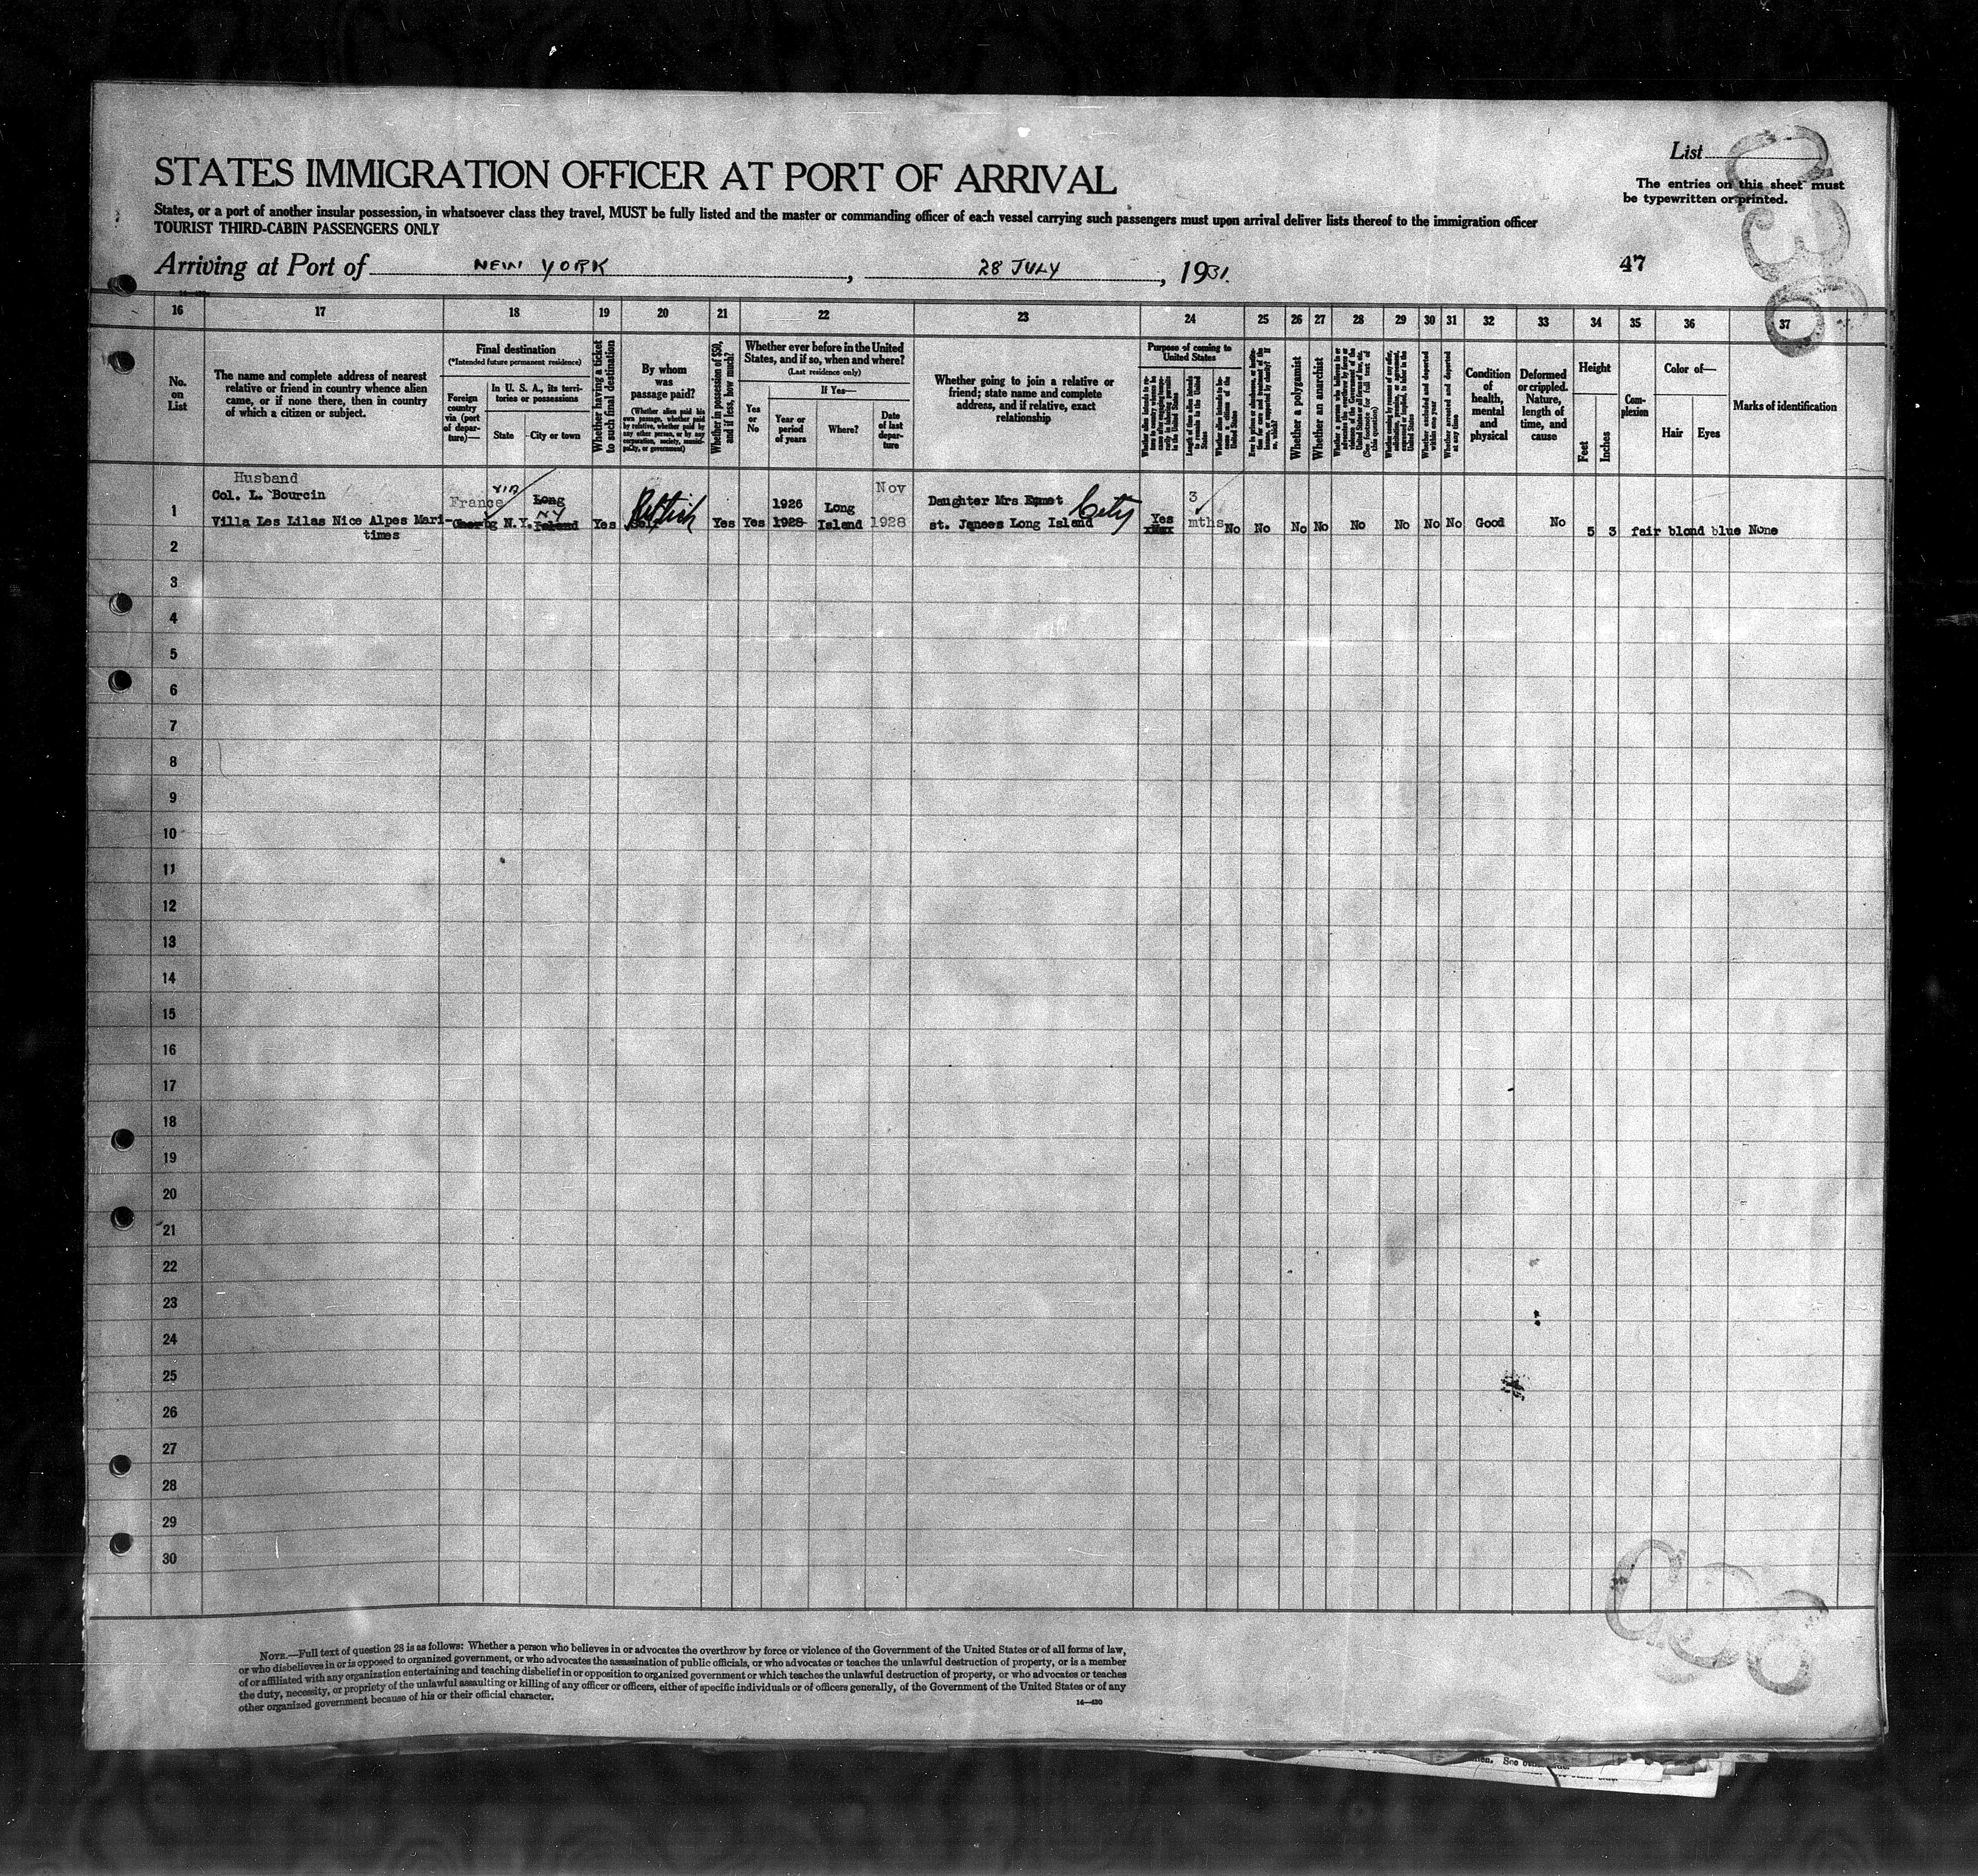 List
The entries on this sheet must
be typewritten or printed.
STATES IMMIGRATION OFFICER AT PORT OF ARRIVAL
States, or a port of another insular possession, in whatsoever class they travel, MUST be fully listed and the master or commanding officer of each vessel carrying such passengers must upon arrival deliver lists thereof to the immigration officer
TOURIST THIRD-CABIN PASSENGERS ONLY
Arriving at Port of NEW YORK, 28 JULY, 1931.
47
16 17 18 19 20 21 22 23 24 25 26 27 28 29 30 31 32 33 34 35 36 37
No.
on
List
The name and complete address of nearest
relative or friend in country whence alien
came, or if none there, then in country
of which a citizen or subject.
Final destination
(*Intended future permanent residence)
Foreign
country
via (port
of depar-
ture)—
In U. S. A., its terri-
tories or possessions
State
City or town
Whether having a ticket
to such final destination
By whom
was
passage paid?
(Whether alien paid his
own passage, whether paid
by relative, whether paid by
any other person, or by any
corporation, society, munici-
pality, or government)
Whether in possession of $50,
and if less, how much?
Whether ever before in the United
States, and if so, when and where?
(Last residence only)
Yes
or
No
If Yes—
Year or
period
of years
Where?
Date
of last
depar-
ture
Whether going to join a relative or
friend; state name and complete
address, and if relative, exact
relationship
Purpose of coming to
United States
Length of time alien intends
to remain in the United
States
Whether a polygamist
Whether an anarchist
Whether excluded and deported
within one year
Whether arrested and deported
at any time
Condition
of
health,
mental
and
physical
Deformed
or crippled.
Nature,
length of
time, and
cause
Height
Feet
Inches
Com-
plexion
Color of—
Hair
Eyes
Marks of identification
Husband
Col. L. Bourcin
Villa Les Lilas Nice Alpes Mari-
times
France
Cherbg
N.Y.
Long
NY
Island
Yes
Self
Yes
Yes
1926
1928
Long
Island
Nov
1928
Daughter Mrs
st. James Long Island
City
Yes
3
mths
No
No
No
No
No
No
No
No
Good
No
5 3 fair blond blue None
1
2
3
4
5
6
7
8
9
10
11
12
13
14
15
16
17
18
19
20
21
22
23
24
25
26
27
28
29
30
NOTE.—Full text of question 28 is as follows: Whether a person who believes in or advocates the overthrow by force or violence of the Government of the United States or of all forms of law,
or who disbelieves in or is opposed to organized government, or who advocates the assassination of public officials, or who advocates or teaches the unlawful destruction of property, or is a member
of or affiliated with any organization entertaining and teaching disbelief in or opposition to organized government or which teaches the unlawful destruction of property, or who advocates or teaches
the duty, necessity, or propriety of the unlawful assaulting or killing of any officer or officers, either of specific individuals or of officers generally, of the Government of the United States or of any
other organized government because of his or their official character.
14—430